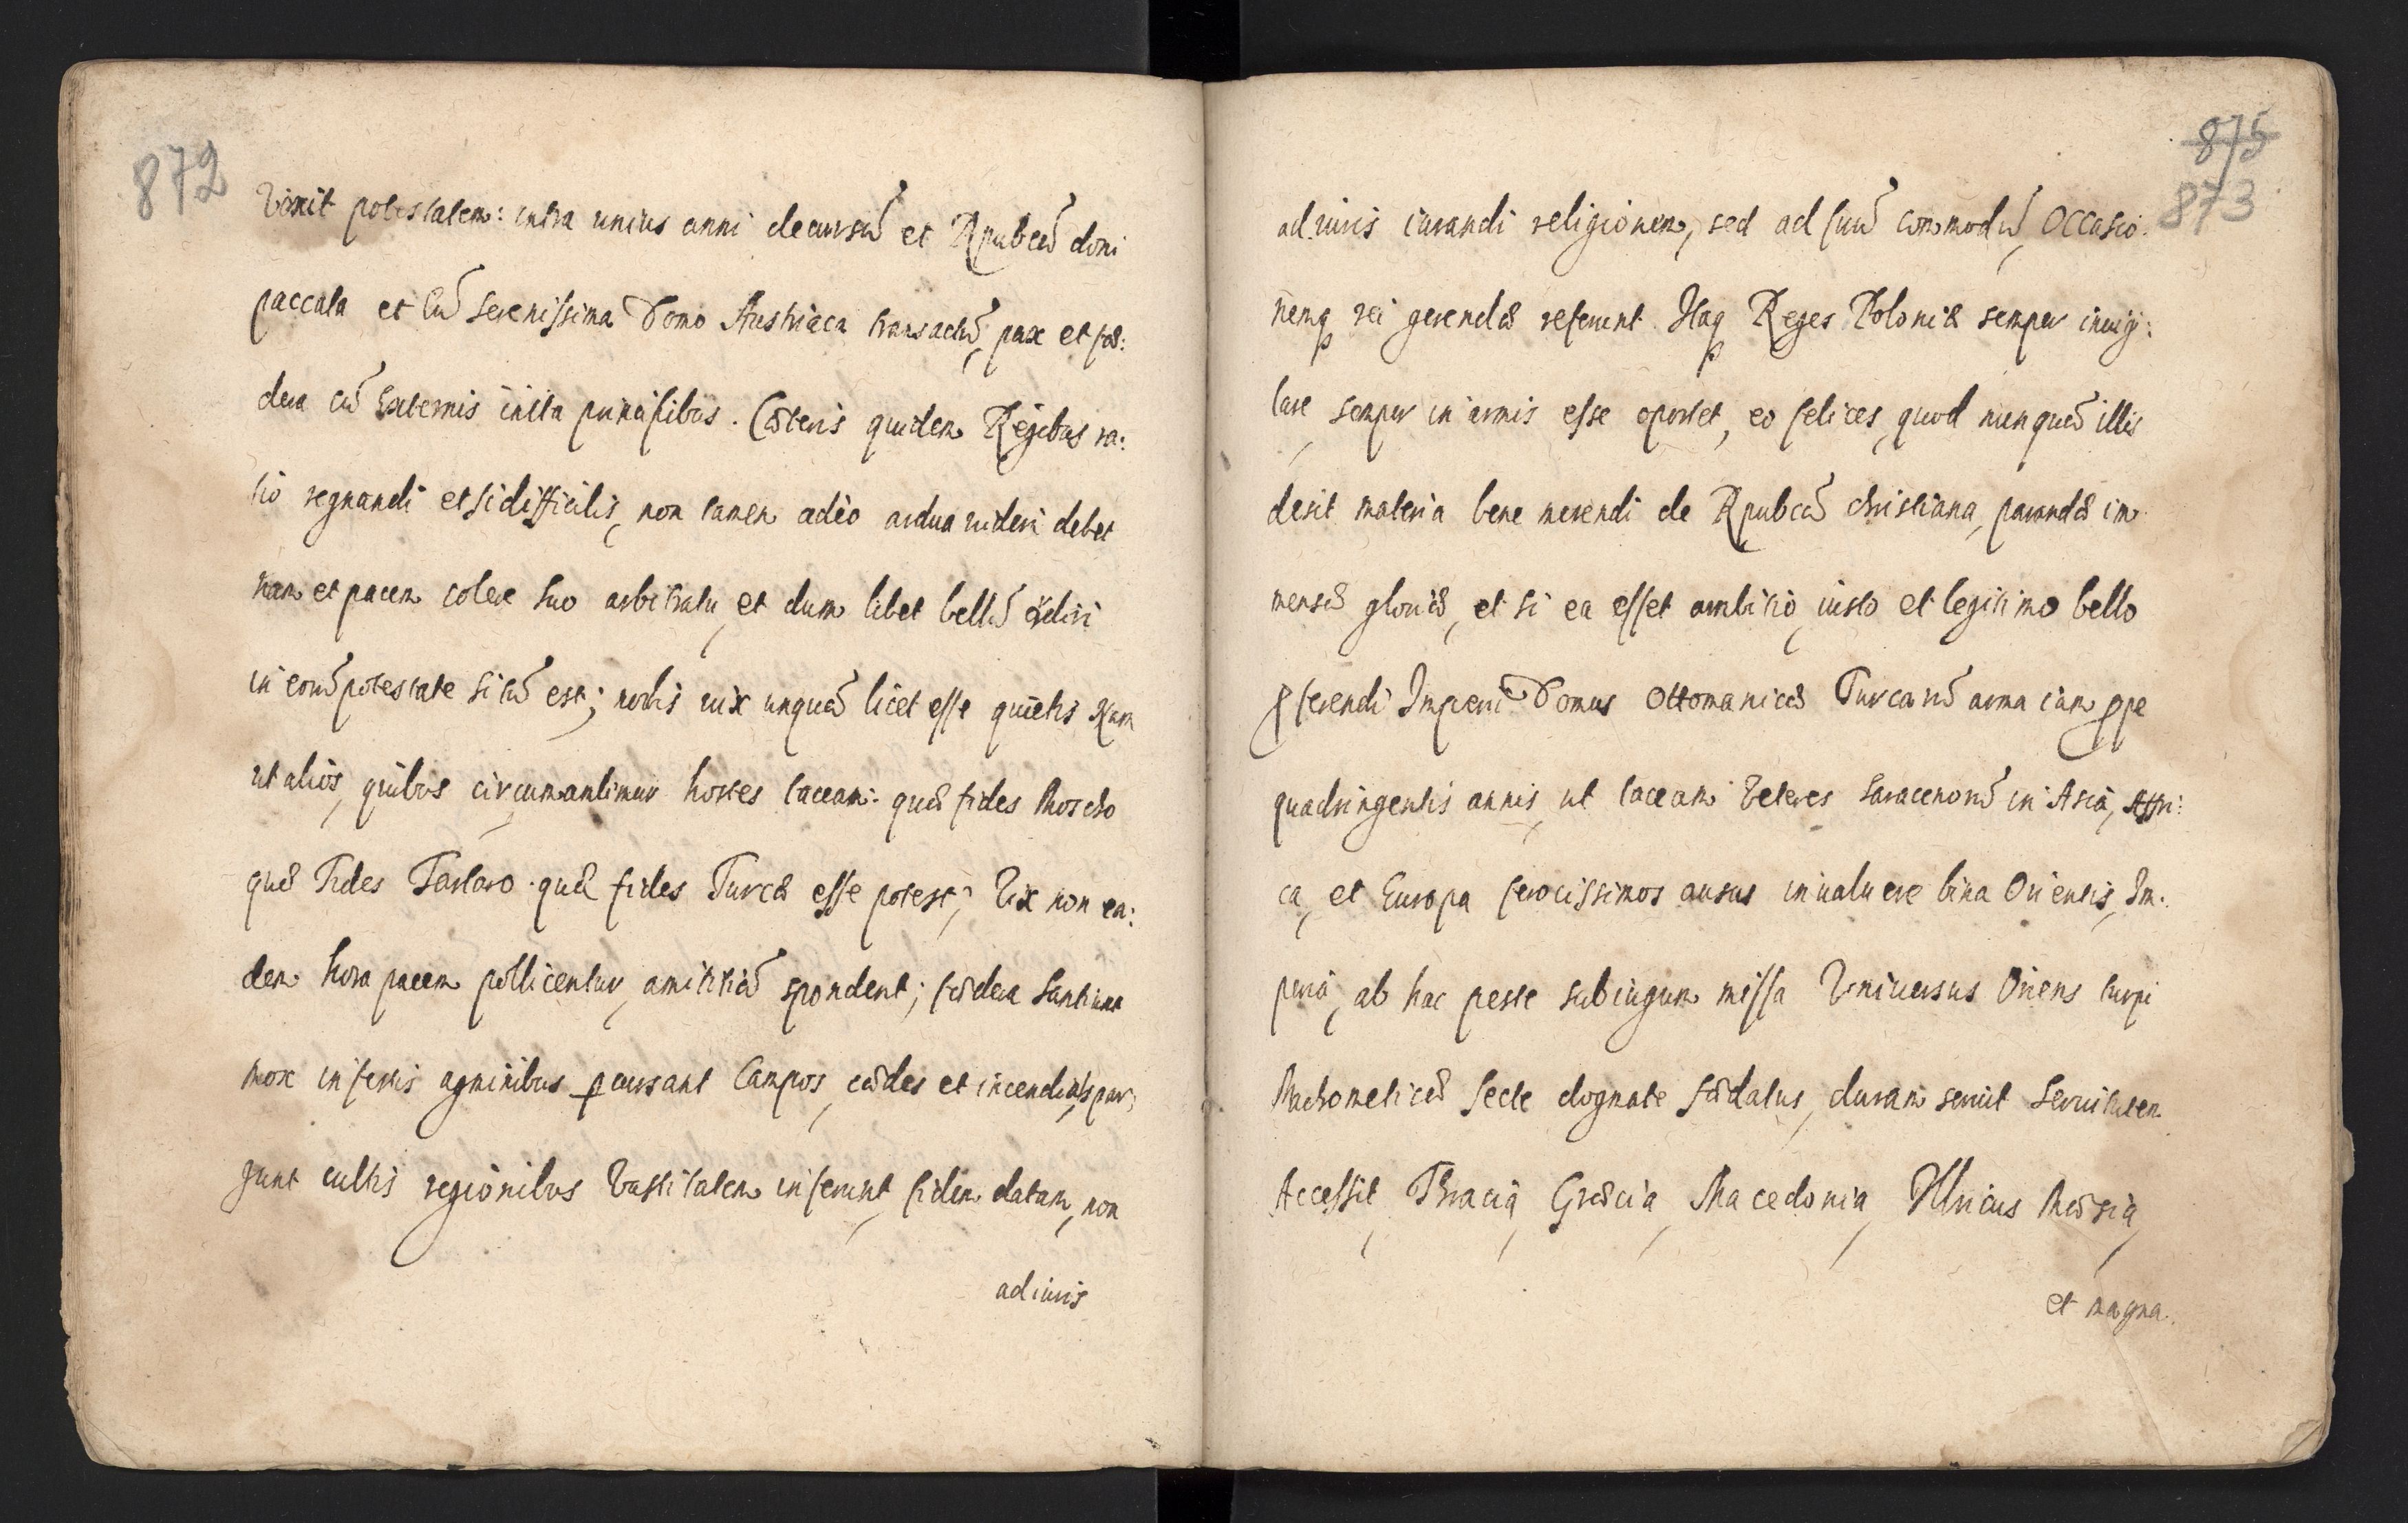 872
Vixit potestatem: intra unius anni decursũ et Rpubcã domi
paccata et Cũ Serenissima Domo Austriaca transactũ, pax et fæ:
dera cũ Externis inita principibus. Cæteris quidem Regibus ra:
tio regnandi etsi difficilis, non tamen adeo ardua videri debet
nam et pacem colere suo arbitratu, et dum libet bellũ ordiri
in eorũ potestate sitũ est; nobis vix unquã licet esse quietis Nam
ut alios, quibus circumamtimur hostes taceam: quæ fides Moscho
quæ Fides Tartaro. quæ fides Turcæ esse potest; Vix non ea:
dem hora pacem pollicentur, amititiã spondent; fædera Santiunt
mox infestis agminibus percursant Campos, cædes et incendia spar:
gunt cultis regionibus Vastitatem inferunt, fidem datam, non
ad iuris
875
873
ad iuris iurandi religionem, sed ad suũ commodũ, Occasio:
nemq rei gerendæ referunt Itaq Reges Poloniæ semper invigi:
lare, semper in armis esse oportet, eo felices, quod nunquã illis
desit materia bene merendi de Rpubcã christiana, parandæ im
mensæ gloriæ, et si ea esset ambitio, iusto et legitimo bello
proferendi Imperii Domus Ottomanicæ Turcarũ arma iam prope
quadringentis annis, ut taceam Veteres Saracenorũ in Asia, Affri:
ca, et Europa ferocissimos ausus invaluere bina Orientis, Im:
peria, ab hac peste subiugum missa Universus Oriens turpi
Machometicæ Secte dogmate fædatus, duram servit Servitutem
Accessit, Thracia, Græcia, Macedonia, Illiricus Mæsia,
et magna.